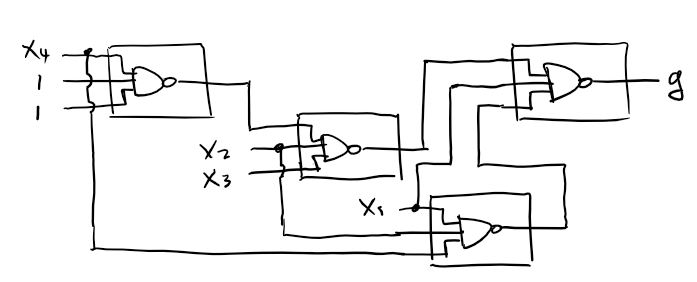 X4
1
1
X2
X3
X1
g